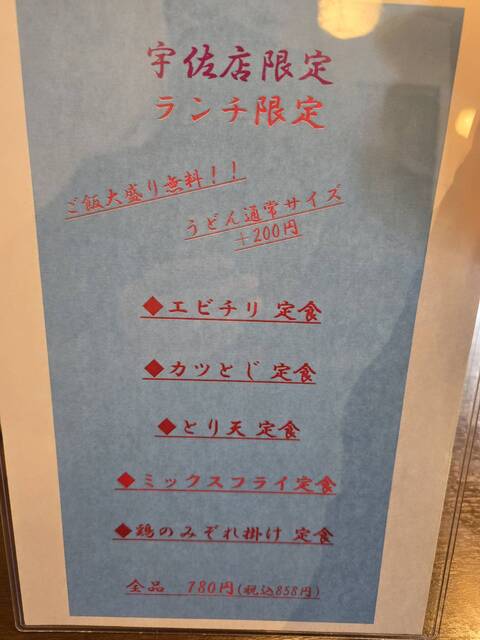 宇佐店限定
ランチ限定
ご飯大盛り無料！！
うどん通常サイズ
＋200円
◆エビチリ 定食
◆カツとじ 定食
◆とり天 定食
◆ミックスフライ定食
◆鶏のみぞれ掛け 定食
全品　780円(税込858円)